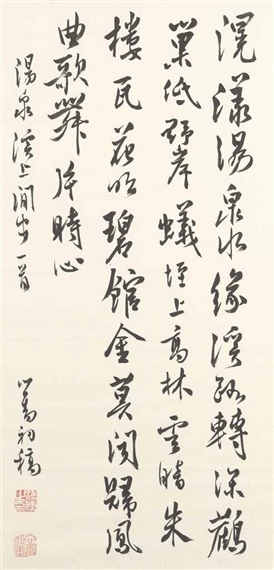 滉漾湯泉水緣溪路轉深鸛
巢低野岸蟻垤上高林雲晴朱
樓瓦花明碧館金莫問歸鳳
曲歌舞片時心
湯泉溪上閒步一首
心畬初稿